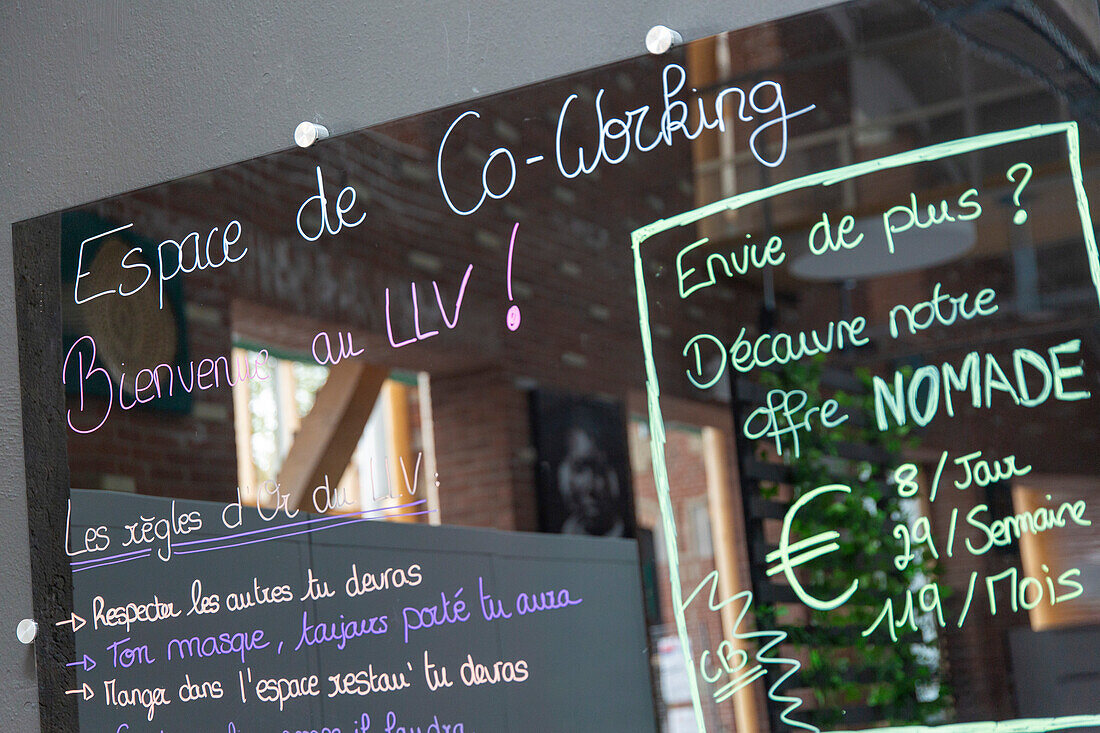 Espace de Co-Working
Bienvenue au LLV !
Les règles d'Or du LLV :
→ Respecter les autres tu devras
→ Ton masque, toujours porté tu aura
→ Manger dans l'espace restau' tu devras
il faudra
Envie de plus ?
Découvre notre
offre NOMADE
€
8 / Jour
29 / Semaine
119 / Mois
CB